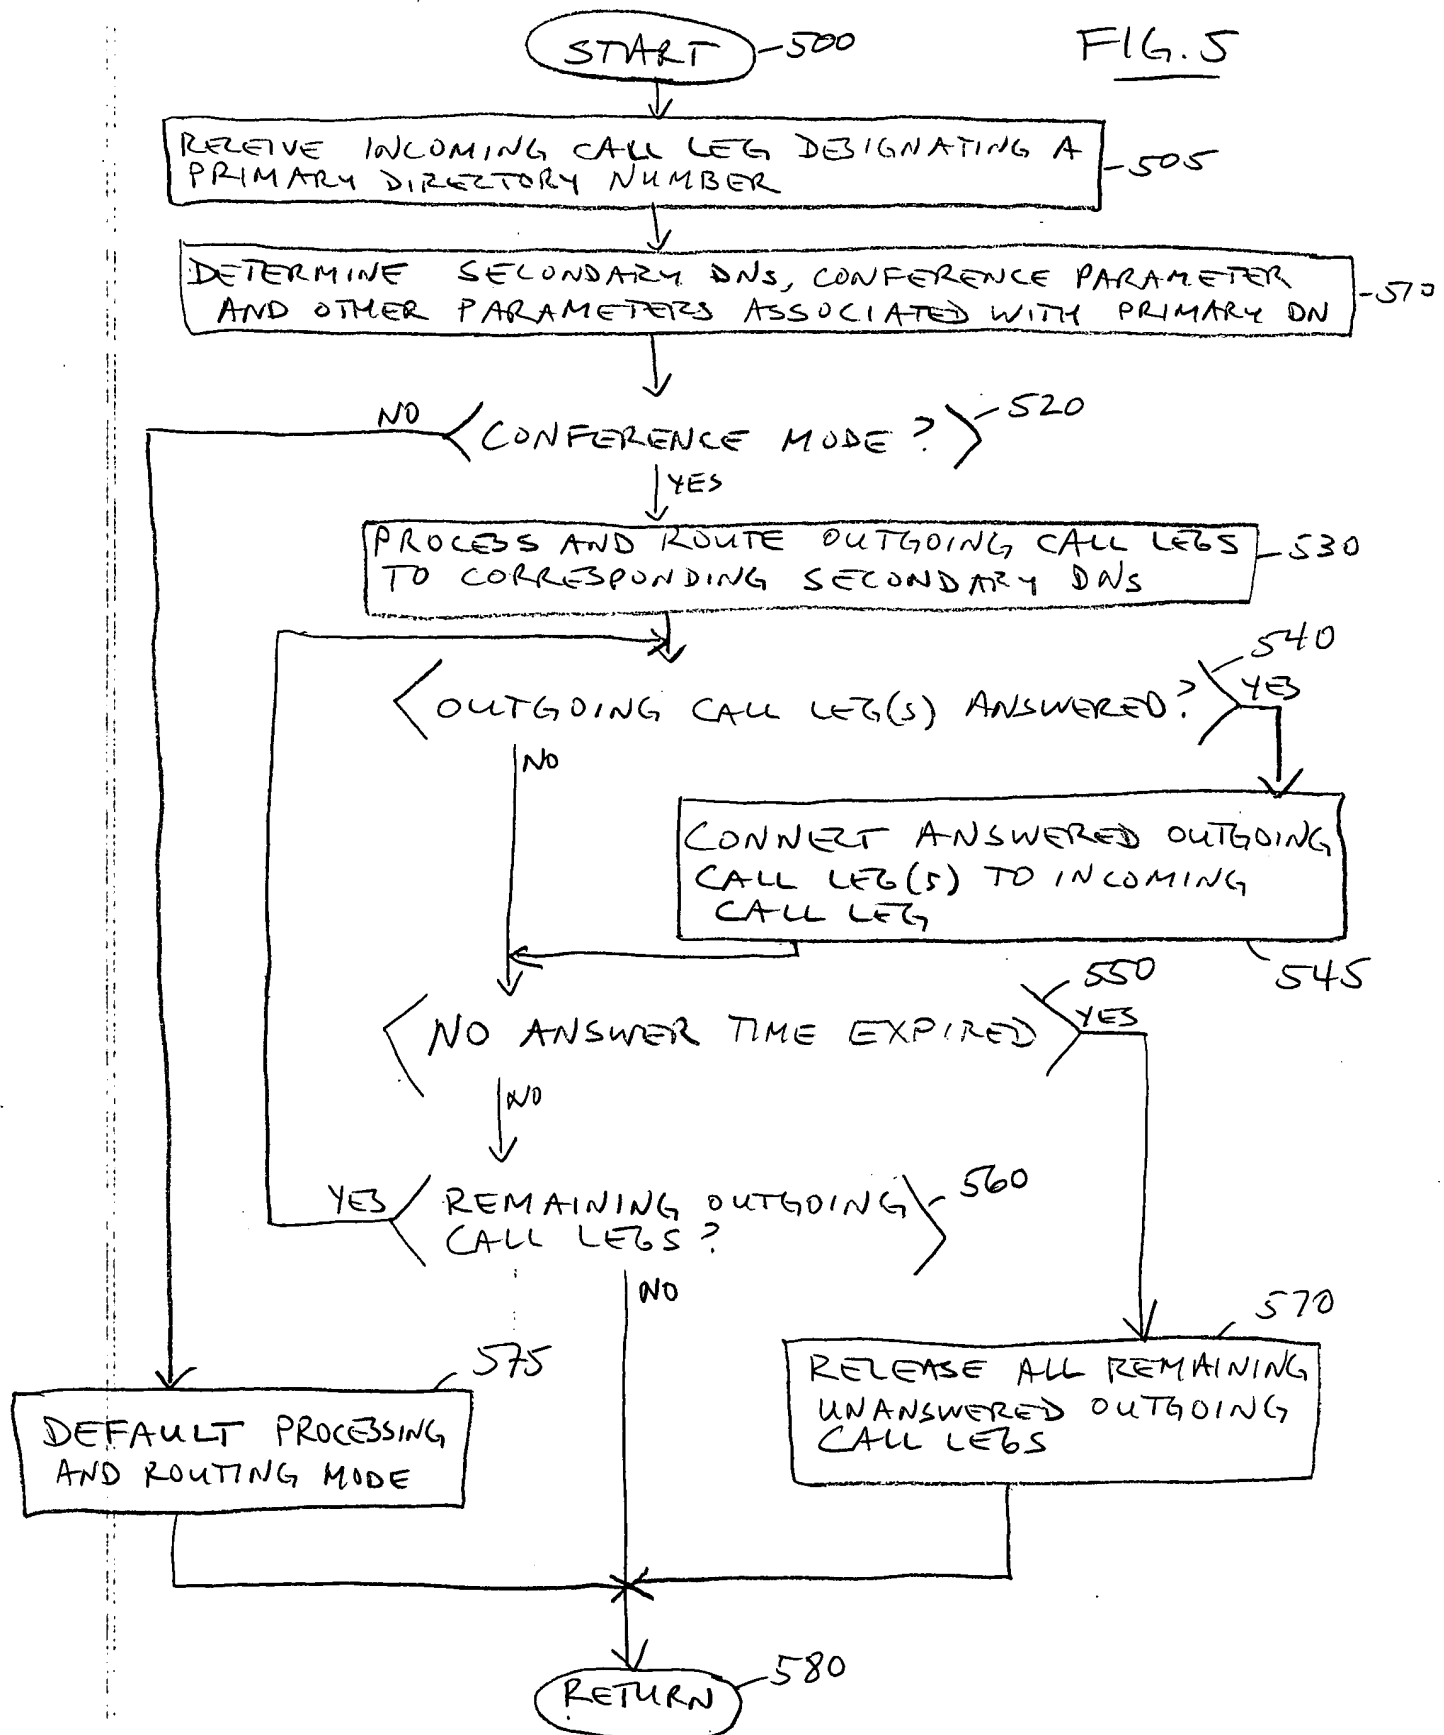 START
500
FIG. 5
RECEIVE INCOMING CALL LEG DESIGNATING A
PRIMARY DIRECTORY NUMBER
505
DETERMINE SECONDARY DNs, CONFERENCE PARAMETER
AND OTHER PARAMETERS ASSOCIATED WITH PRIMARY DN
510
NO
CONFERENCE MODE?
520
YES
PROCESS AND ROUTE OUTGOING CALL LEGS
TO CORRESPONDING SECONDARY DNs
530
540
OUTGOING CALL LEG(S) ANSWERED?
YES
NO
CONNECT ANSWERED OUTGOING
CALL LEG(S) TO INCOMING
CALL LEG
545
550
NO ANSWER TIME EXPIRED
YES
NO
560
YES
REMAINING OUTGOING
CALL LEGS?
NO
570
575
RELEASE ALL REMAINING
UNANSWERED OUTGOING
CALL LEGS
DEFAULT PROCESSING
AND ROUTING MODE
580
RETURN